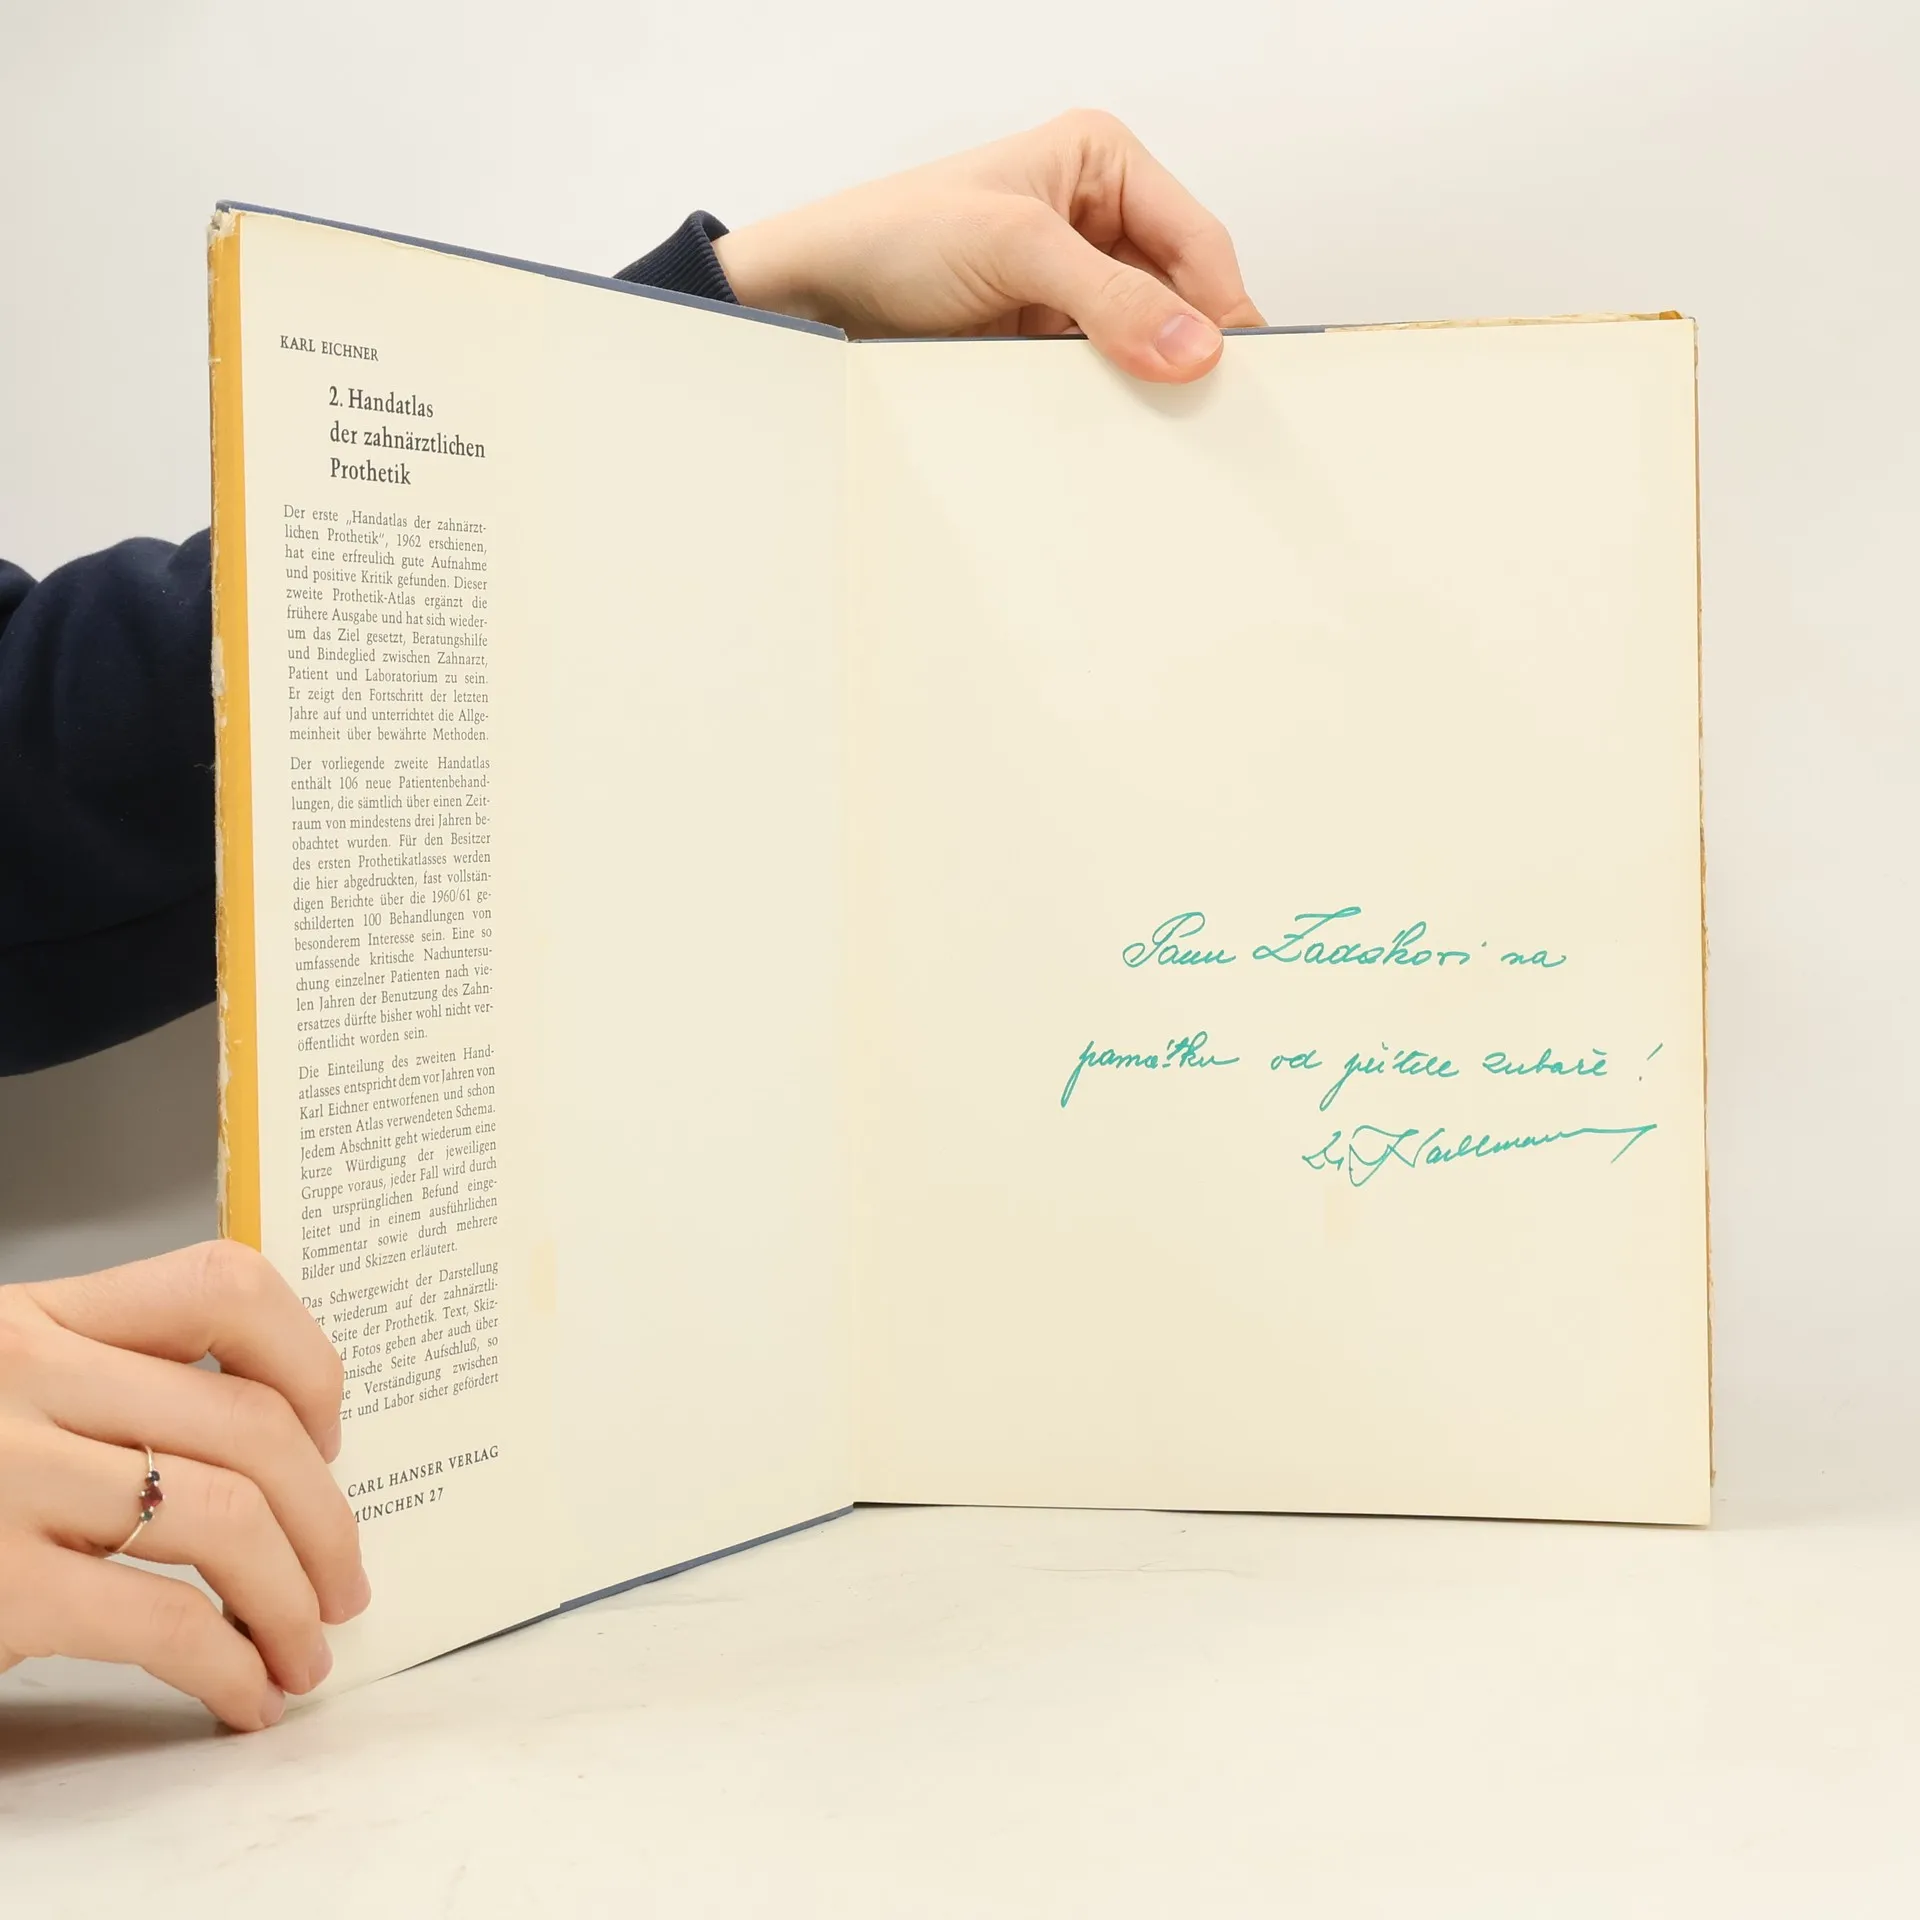 KARL EICHNER
2. Handatlas
der zahnärztlichen
Prothetik
Der erste „Handatlas der zahnärzt-
lichen Prothetik“, 1962 erschienen,
hat eine erfreulich gute Aufnahme
und positive Kritik gefunden. Dieser
zweite Prothetik-Atlas ergänzt die
frühere Ausgabe und hat sich wieder-
um das Ziel gesetzt, Beratungshilfe
und Bindeglied zwischen Zahnarzt,
Patient und Laboratorium zu sein.
Er zeigt den Fortschritt der letzten
Jahre auf und unterrichtet die Allge-
meinheit über bewährte Methoden.
Der vorliegende zweite Handatlas
enthält 106 neue Patientenbehand-
lungen, die sämtlich über einen Zeit-
raum von mindestens drei Jahren be-
obachtet wurden. Für den Besitzer
des ersten Prothetikatlasses werden
die hier abgedruckten, fast vollstän-
digen Berichte über die 1960/61 ge-
schilderten 100 Behandlungen von
besonderem Interesse sein. Eine so
umfassende kritische Nachuntersu-
chung einzelner Patienten nach vie-
len Jahren der Benutzung des Zahn-
ersatzes dürfte bisher wohl nicht ver-
öffentlicht worden sein.
Die Einteilung des zweiten Hand-
atlasses entspricht dem vor Jahren von
Karl Eichner entworfenen und schon
im ersten Atlas verwendeten Schema.
Jedem Abschnitt geht wiederum eine
kurze Würdigung der jeweiligen
Gruppe voraus, jeder Fall wird durch
den ursprünglichen Befund einge-
leitet und in einem ausführlichen
Kommentar sowie durch mehrere
Bilder und Skizzen erläutert.
Das Schwergewicht der Darstellung
gt wiederum auf der zahnärztli-
Seite der Prothetik. Text, Skiz-
d Fotos geben aber auch über
hnische Seite Aufschluß, so
ie Verständigung zwischen
zt und Labor sicher gefördert
CARL HANSER VERLAG
MÜNCHEN 27
Panu na
památku od přítele zubaře!